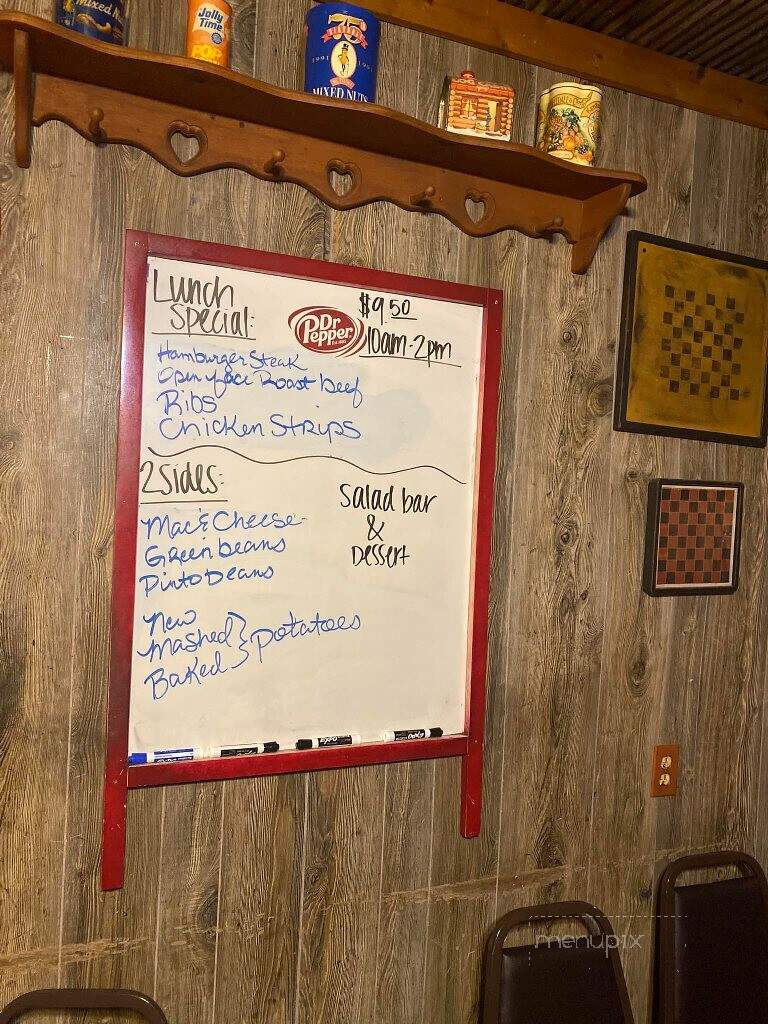 Mixed N
Jolly
Time
POP
75
1991
MIXED NUTS
Lunch
Special:
Dr
Pepper
$9.50
10am-2pm
Hamburger Steak
Open face Roast beef
Ribs
Chicken Strips
2 Sides:
Mac & Cheese
Green beans
Pinto beans
Salad bar
&
Dessert
New
Mashed } potatoes
Baked
EXPO
EXPO
menupix